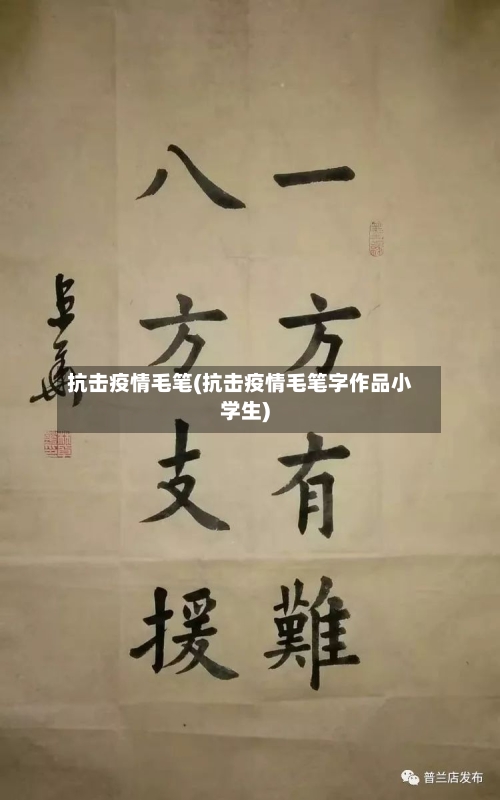 一方有難
八方支援
抗击疫情毛笔(抗击疫情毛笔字作品小
学生)
普兰店发布